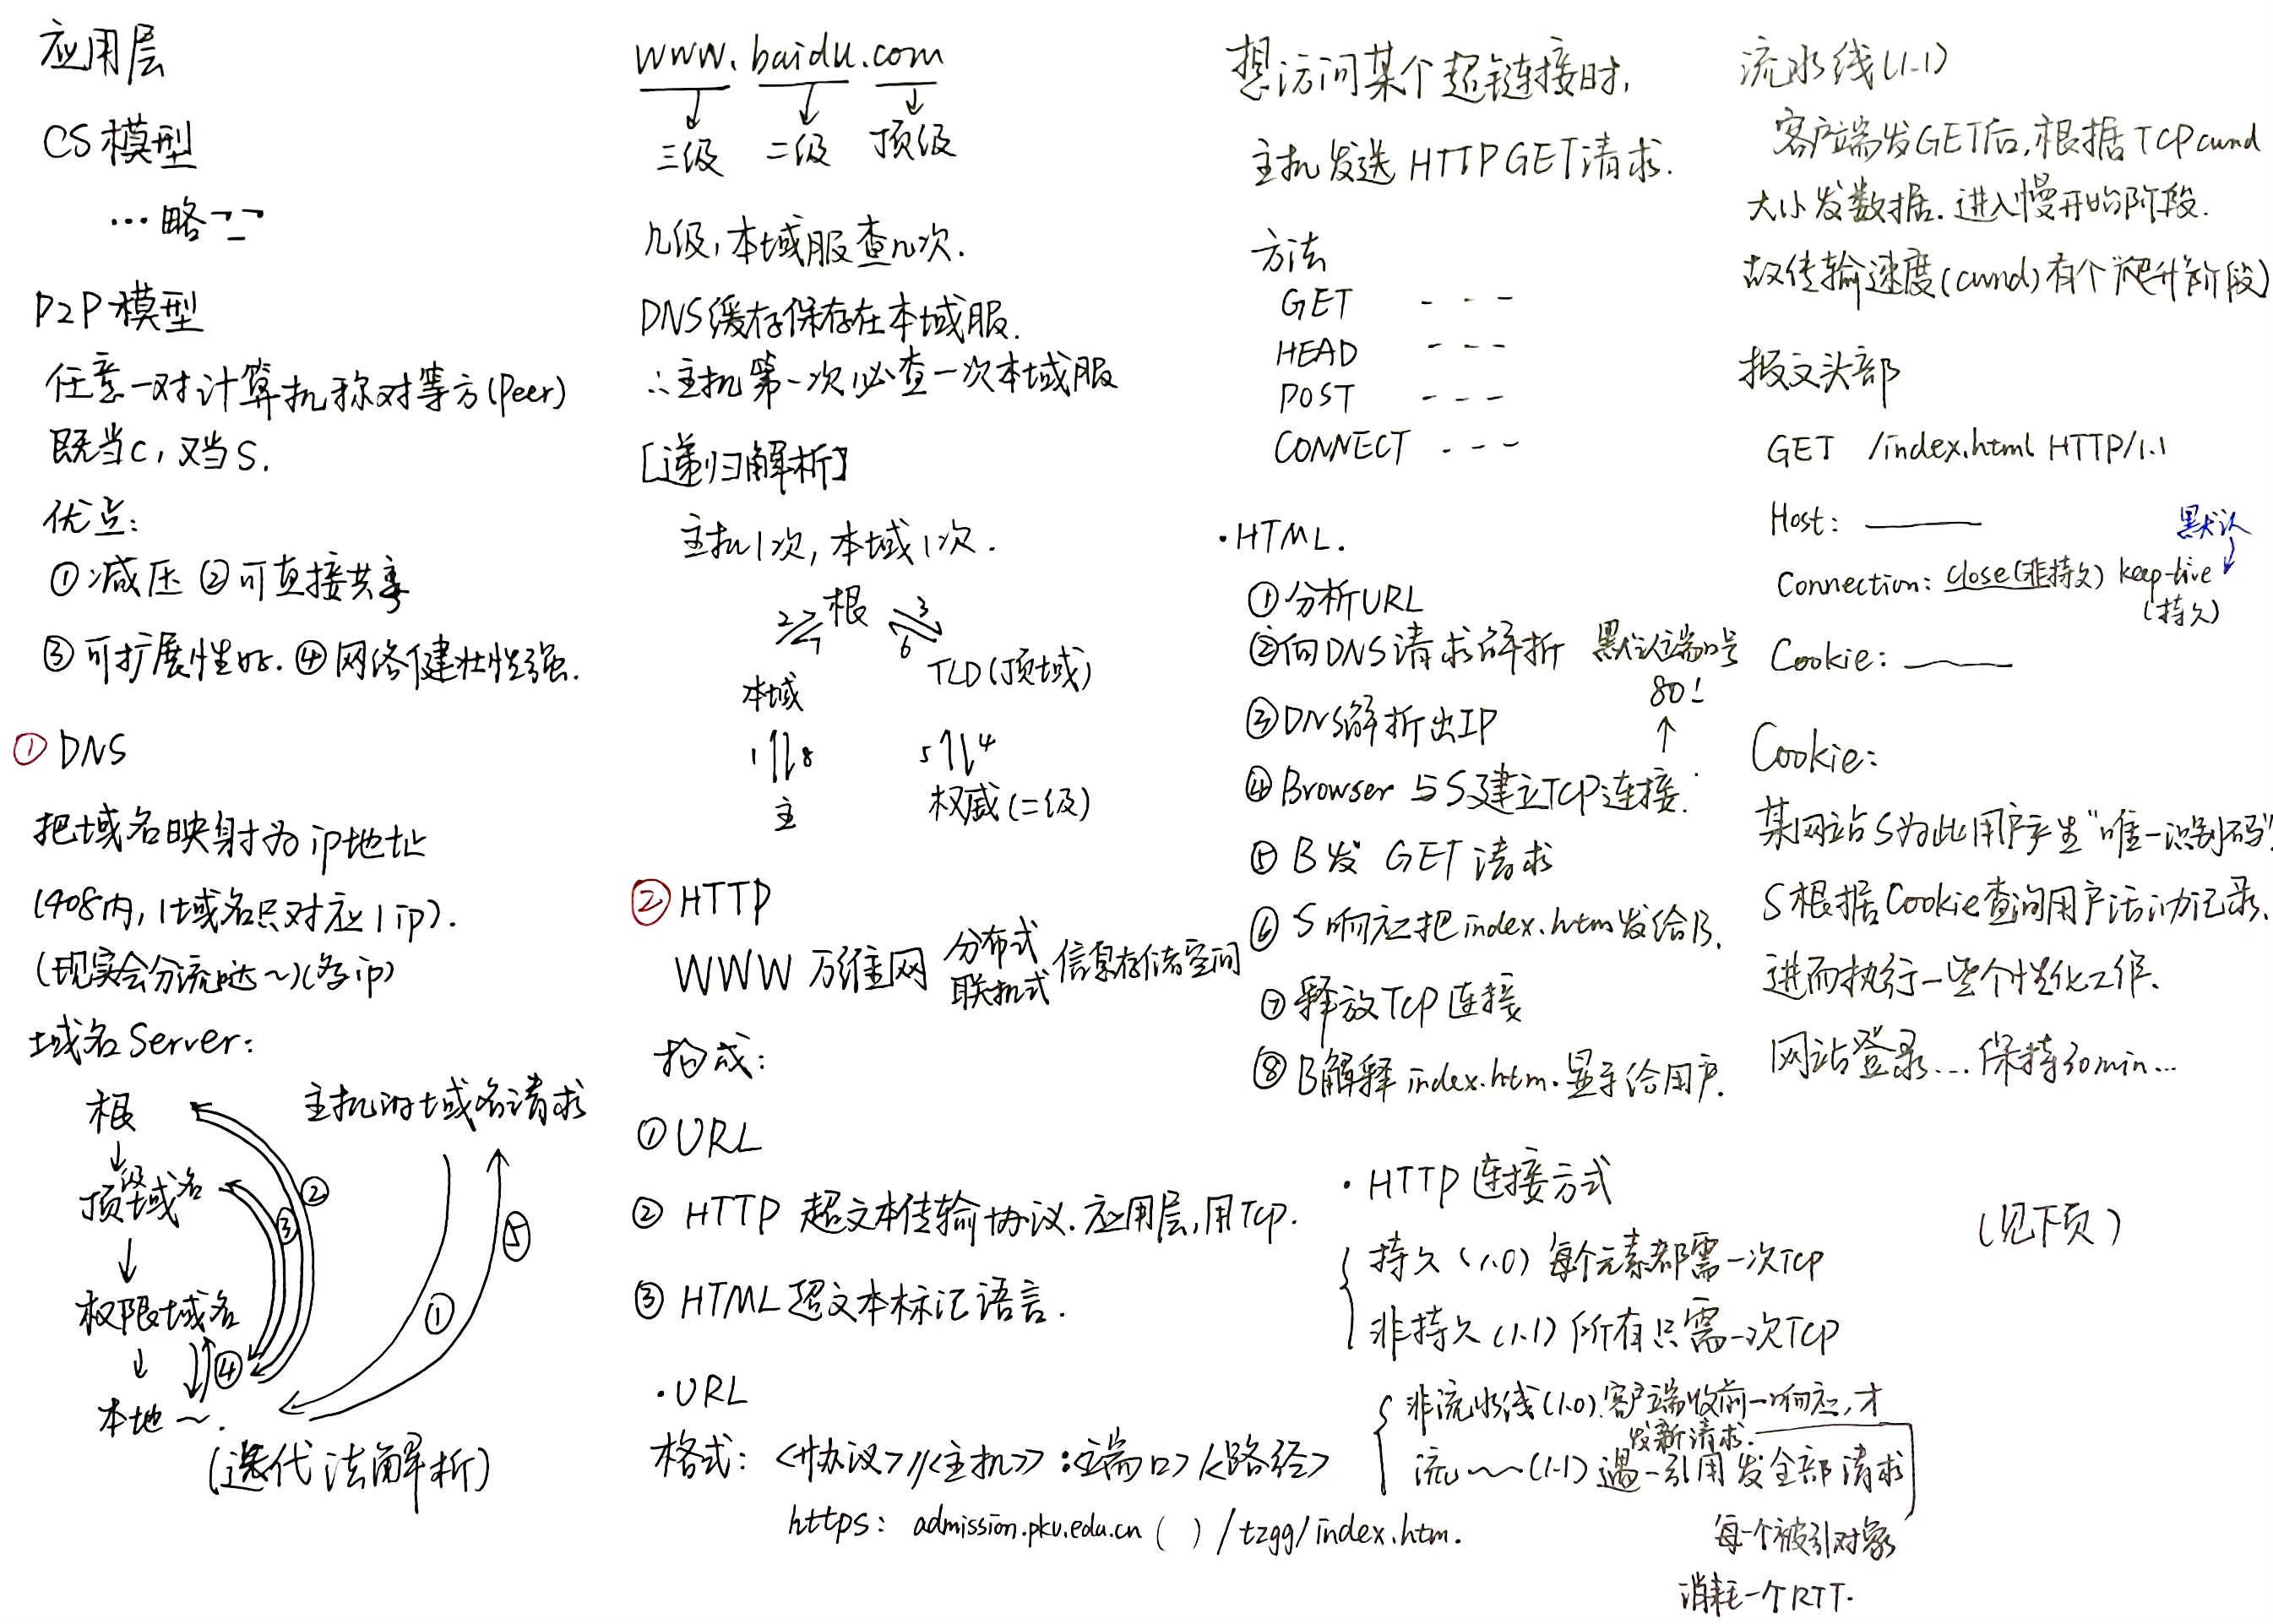 应用层
CS模型
…略
P2P模型
任意一对计算机称对等方(Peer)
既当C，又当S.
优点:
①减压 ②可直接共享
③可扩展性好. ④网络健壮性强.
① DNS
把域名映射为ip地址
(408内, 1域名只对应1ip).
(现实会分流哒~)(多ip)
域名Server:
根
主机的域名请求
↓
顶级域名
②
③
⑤
↓
权限域名
①
↓
④
本地~.
(迭代法解析)
www.baidu.com
三级 二级 顶级
几级, 本域服查几次.
DNS缓存保存在本域服.
∴主机第一次必查一次本域服
[递归解析]
主机1次, 本域1次.
2 7 根 3 6
TLD(顶域)
本域
1 8 5 4
主 权威(二级)
② HTTP
WWW 万维网 分布式 联机式 信息存储空间
构成:
①URL
② HTTP 超文本传输协议. 应用层, 用TCP.
③ HTML 超文本标记语言.
·URL
格式: <协议>//<主机>:<端口>/<路径>
https: admission.pku.edu.cn ( ) /tzgg/index.htm.
想访问某个超链接时,
主机发送 HTTP GET请求.
方法
GET - - -
HEAD - - -
POST - - -
CONNECT - - -
·HTML.
①分析URL
②向DNS请求解析
默认端口号
80!
↑
③DNS解析出IP
④Browser 与S建立TCP连接.
⑤ B发 GET 请求
⑥ S响应把index.htm发给B.
⑦释放TCP连接
⑧B解释 index.htm. 显示给用户.
·HTTP连接方式
持久(1.0) 每个元素都需一次TCP
非持久(1.1) 所有只需一次TCP
非流水线(1.0). 客户端收前一响应, 才
发新请求.
流~~(1.1) 遇一引用发全部请求
每一个被引对象
消耗一个RTT.
流水线(1.1)
客户端发GET后, 根据TCP cwnd
大小发数据. 进入慢开始阶段.
故传输速度(cwnd)有个"爬升"阶段)
报文头部
GET /index.html HTTP/1.1
Host: ——
默认
Connection: close(非持久) keep-live
(持久)
Cookie: ——
Cookie:
某网站S为此用户产生"唯一识别码".
S根据Cookie查询用户活动记录.
进而执行一些个性化工作.
网站登录…保持30min…
(见下页)